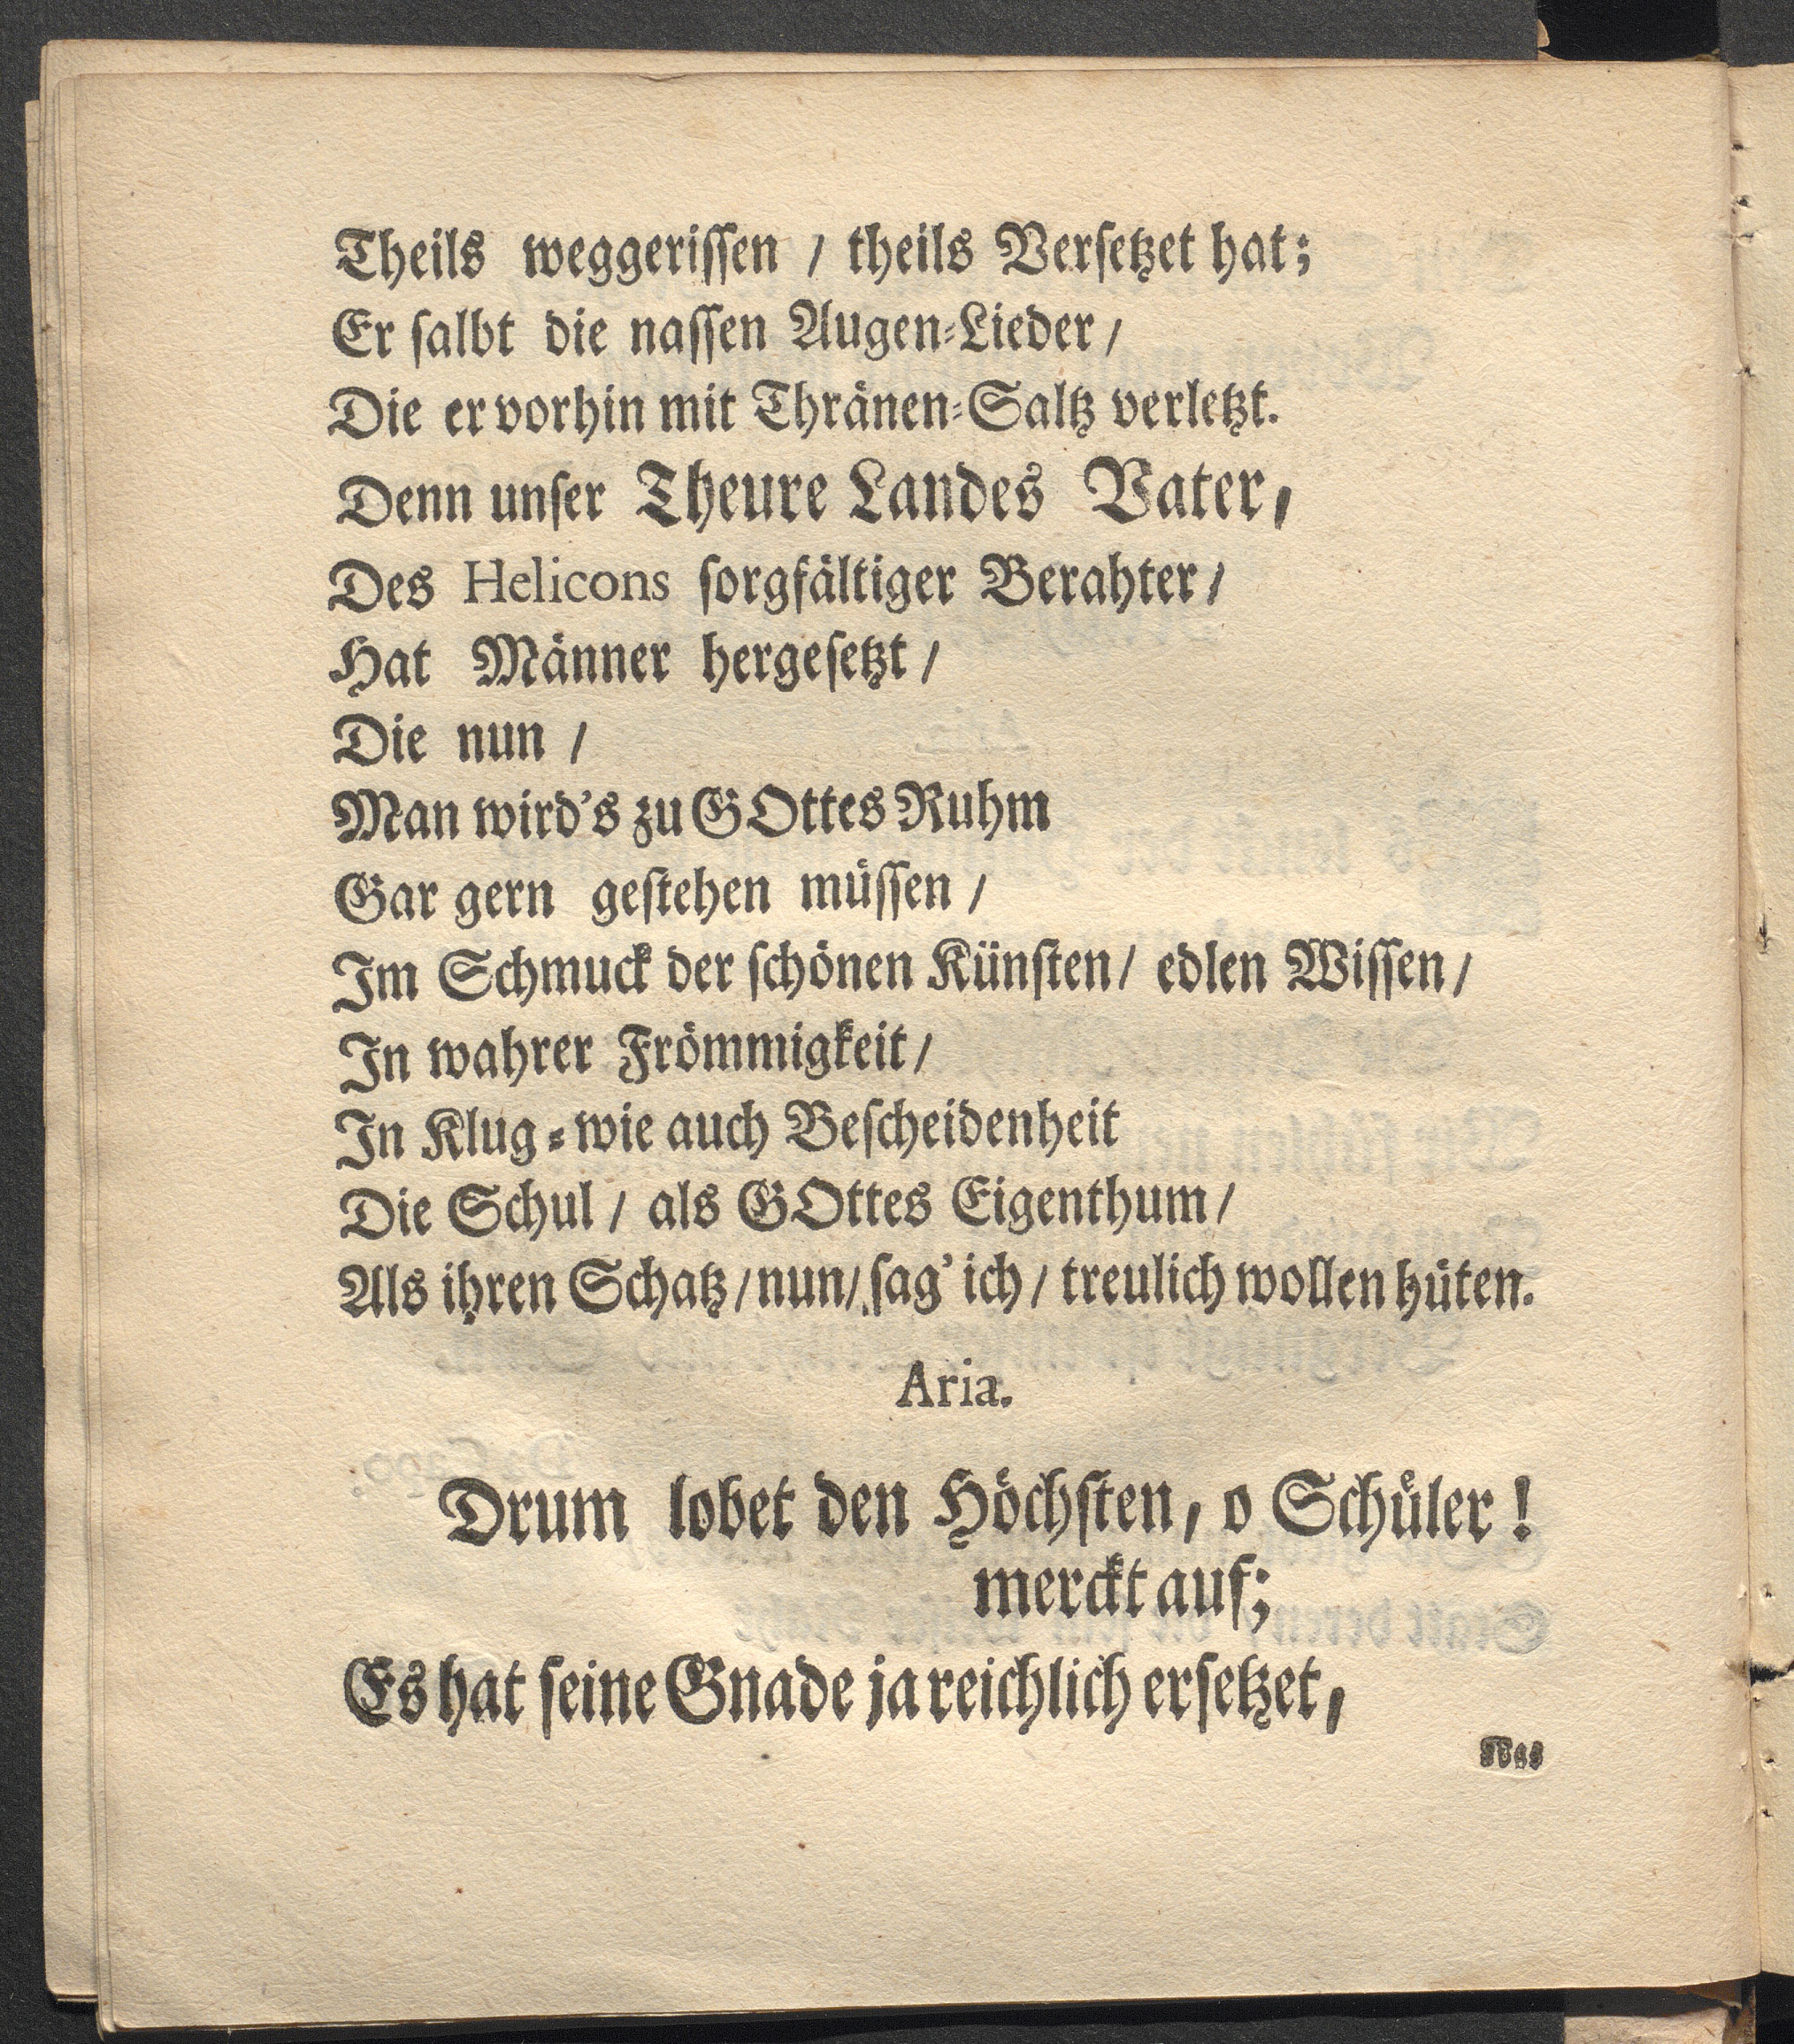 Theils weggeriſſen / theils Verſetzet hat;
Er ſalbt die naſſen Augen-Lieder /
Die er vorhin mit Thränen-Saltz verletzt.
Denn unſer Theure Landes Vater,
Des Helicons ſorgfältiger Berahter /
Hat Männer hergeſetzt /
Die nun /
Man wird's zu GOttes Ruhm
Gar gern geſtehen müſſen /
Im Schmuck der ſchönen Künſten / edlen Wiſſen /
In wahrer Frömmigkeit /
In Klug- wie auch Beſcheidenheit
Die Schul / als GOttes Eigenthum /
Als ihren Schatz / nun / ſag' ich / treulich wollen hüten.
Aria.
Drum lobet den Höchſten, o Schüler!
merckt auf;
Es hat ſeine Gnade ja reichlich erſetzet,